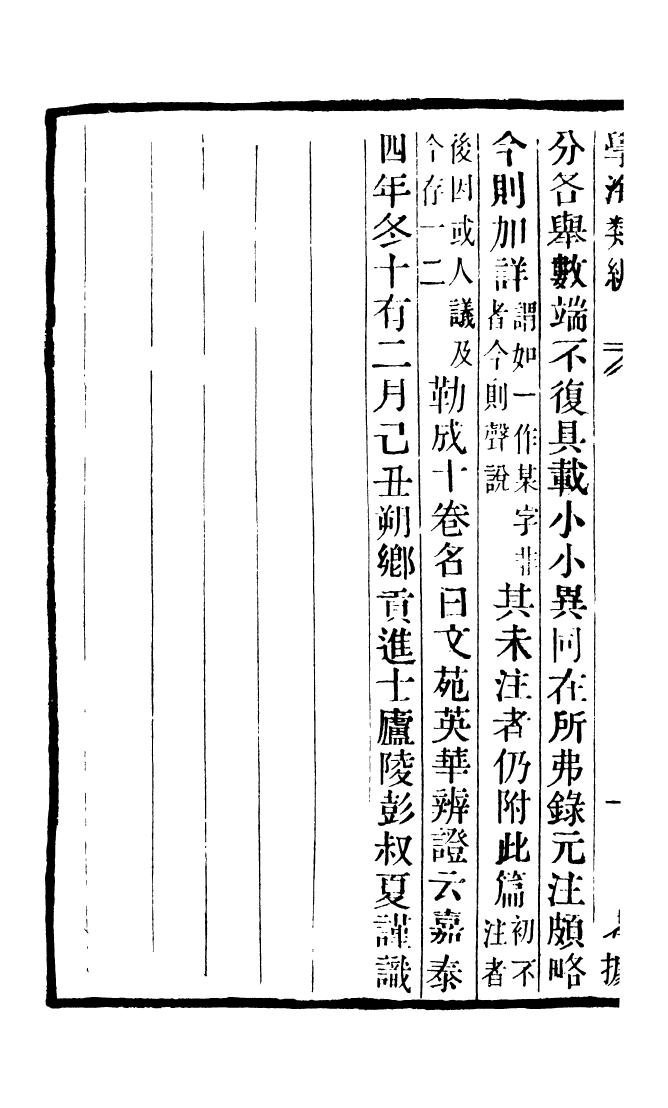 學海類編 一 據
分各舉數端不復具載小小異同在所弗錄元注頗略
今則加詳謂如一作某字非者今則聲說其未注者仍附此篇初不注者
後因或人議及今存一二勒成十卷名曰文苑英華辨證云嘉泰
四年冬十有二月己丑朔鄉貢進士廬陵彭叔夏謹識